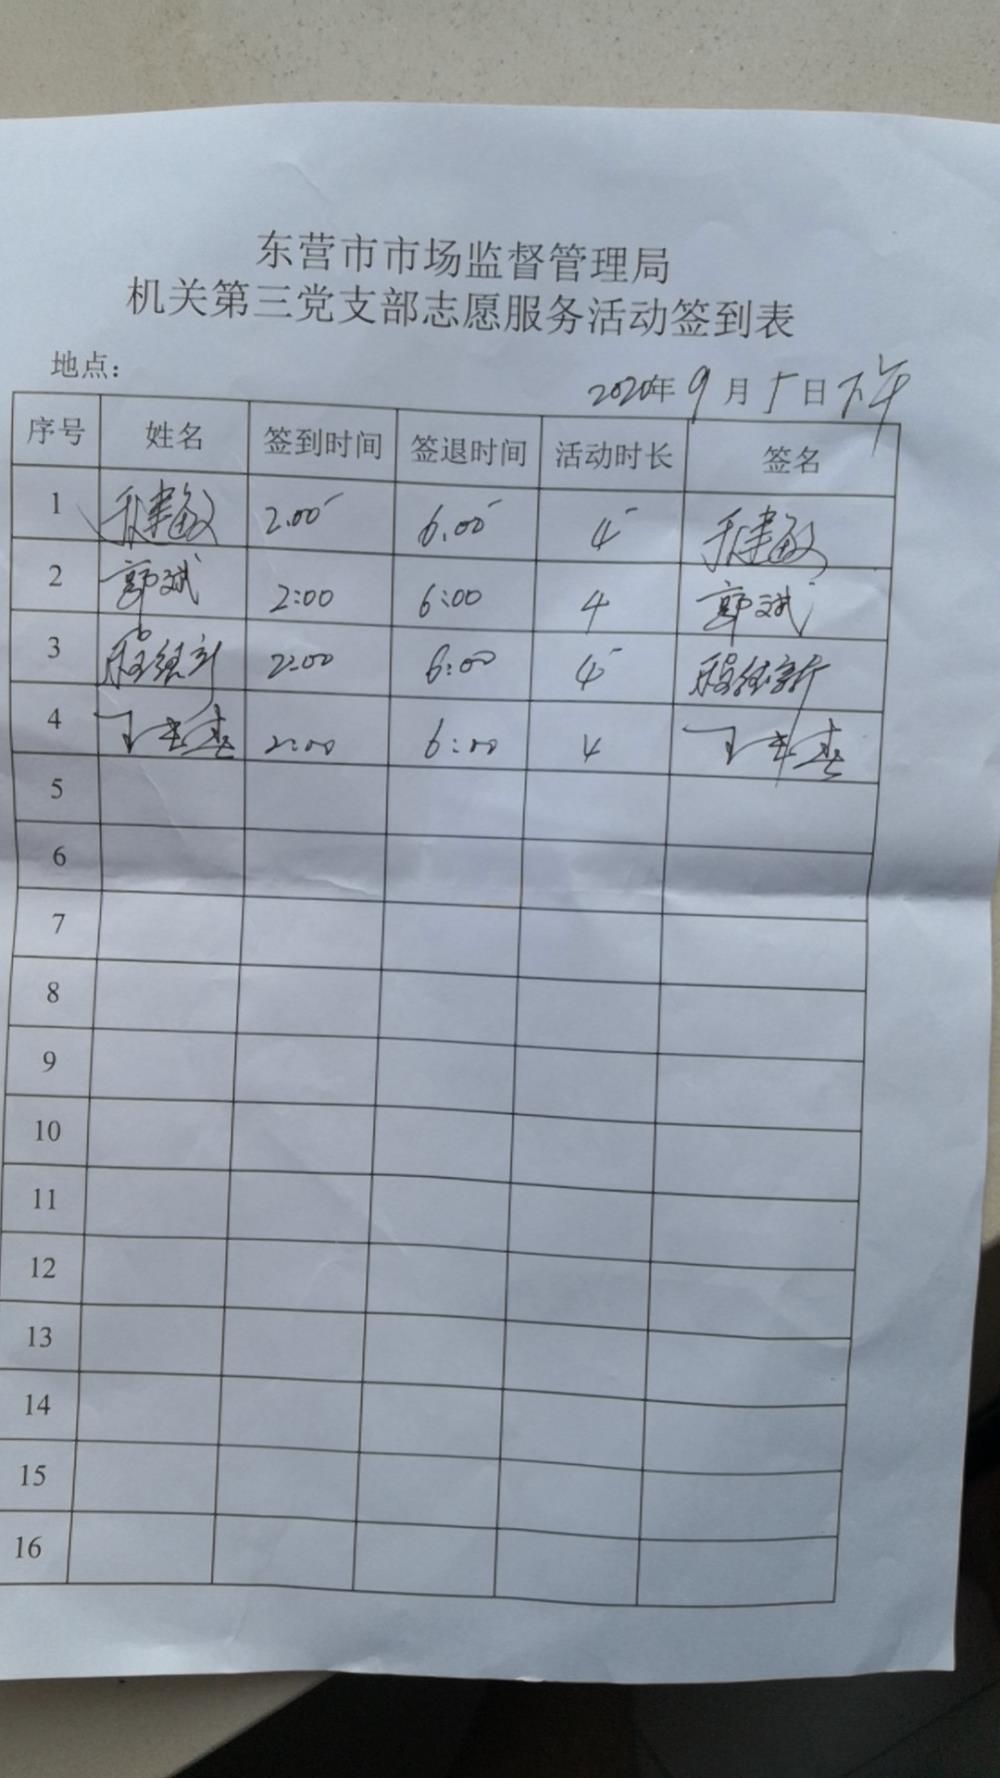 东营市市场监督管理局
机关第三党支部志愿服务活动签到表
地点:
2020年9月5日下午
序号 姓名 签到时间 签退时间 活动时长 签名
1 2:00 6:00 4
2 郭斌 2:00 6:00 4 郭斌
3 2:00 6:00 4
4 2:00 6:00 4
5
6
7
8
9
10
11
12
13
14
15
16